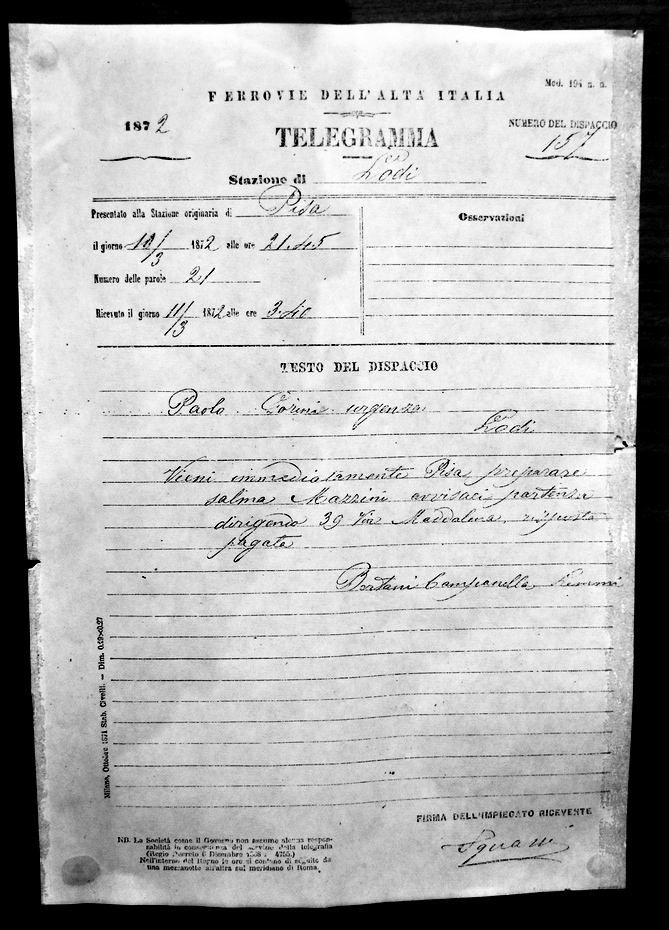 Mod. 194 n. n.
FERROVIE DELL'ALTA ITALIA
1872
NUMERO DEL DISPACCIO
157
TELEGRAMMA
Stazione di Lodi
Presentato alla Stazione originaria di Pisa
il giorno 10/3 1872 alle ore 21.45
Numero delle parole 21
Ricevuto il giorno 11/3 1872 alle ore 3.40
Osservazioni
TESTO DEL DISPACCIO
Paolo Gorini urgenza
Lodi
Vieni immediatamente Pisa preparare
salma Mazzini avvisaci partenza
dirigendo 39 Via Maddalena, risposta
pagata
Bertani Campanella Lemmi
Milano, Ottobre 1871 Stab. Civelli. — Dim. 0.39×0.27
FIRMA DELL'IMPIEGATO RICEVENTE
NB. La Società come il Governo non assume alcuna respon-
sabilità in conseguenza del servizio della telegrafia
(Regio Decreto 6 Dicembre 1858 4755.)
Nell'interno del Regno le ore si contano di seguito da
una mezzanotte all'altra sul meridiano di Roma.